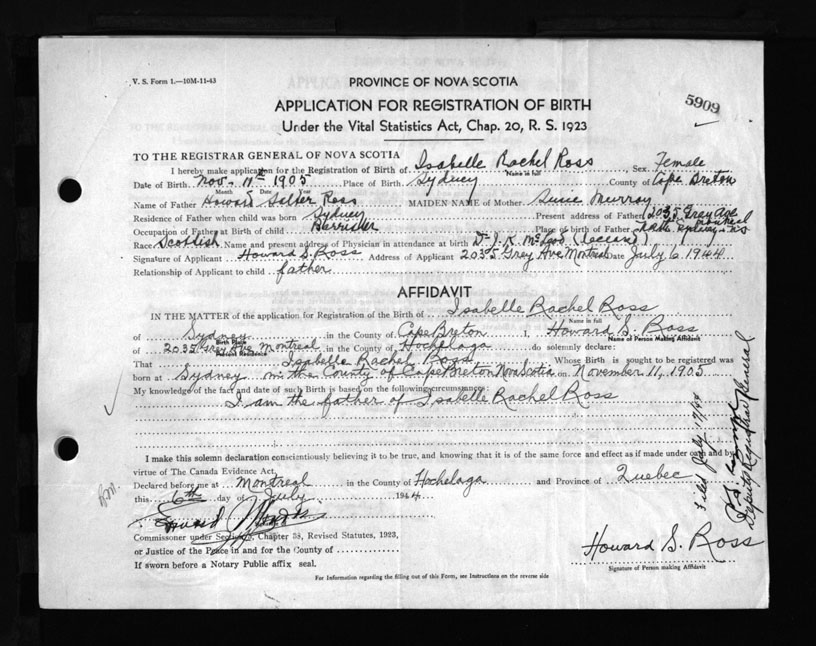 V. S. Form 1.—10M-11-43
PROVINCE OF NOVA SCOTIA
5909
APPLICATION FOR REGISTRATION OF BIRTH
Under the Vital Statistics Act, Chap. 20, R. S. 1923
TO THE REGISTRAR GENERAL OF NOVA SCOTIA
I hereby make application for the Registration of Birth of Isabelle Rachel Ross Sex Female
Name in full
Date of Birth Nov. 11th 1905 Place of Birth Sydney County of Cape Breton
Month Date Year
Name of Father Howard Salter Ross MAIDEN NAME of Mother Susie Murray
Residence of Father when child was born Sydney Present address of Father 2035 Grey Ave Montreal
Occupation of Father at Birth of child Barrister Place of birth of Father N.S.
Race Scottish Name and present address of Physician in attendance at birth Dr J. K. McLeod (deceased)
Signature of Applicant Howard S. Ross Address of Applicant 2035 Grey Ave Montreal Date July 6 1944
Relationship of Applicant to child father
AFFIDAVIT
IN THE MATTER of the application for Registration of the Birth of Isabelle Rachel Ross
Name in full
of Sydney in the County of Cape Breton I, Howard S. Ross
Birth Place Name of Person Making Affidavit
of 2035 Grey Ave Montreal in the County of Hochelaga do solemnly declare:
Present Residence
That Isabelle Rachel Ross Whose Birth is sought to be registered was
born at Sydney in the County of Cape Breton Nova Scotia on November 11, 1905
My knowledge of the fact and date of such Birth is based on the following circumstances:
I am the father of Isabelle Rachel Ross
I make this solemn declaration conscientiously believing it to be true, and knowing that it is of the same force and effect as if made under oath and by
virtue of The Canada Evidence Act.
Declared before me at Montreal in the County of Hochelaga and Province of Quebec
this 6th day of July 1944
Commissioner under Section 3, Chapter 38, Revised Statutes, 1923,
or Justice of the Peace in and for the County of
If sworn before a Notary Public affix seal.
Howard S. Ross
Signature of Person making Affidavit
For Information regarding the filling out of this Form, see Instructions on the reverse side
Filed July 17/44
Deputy Registrar General